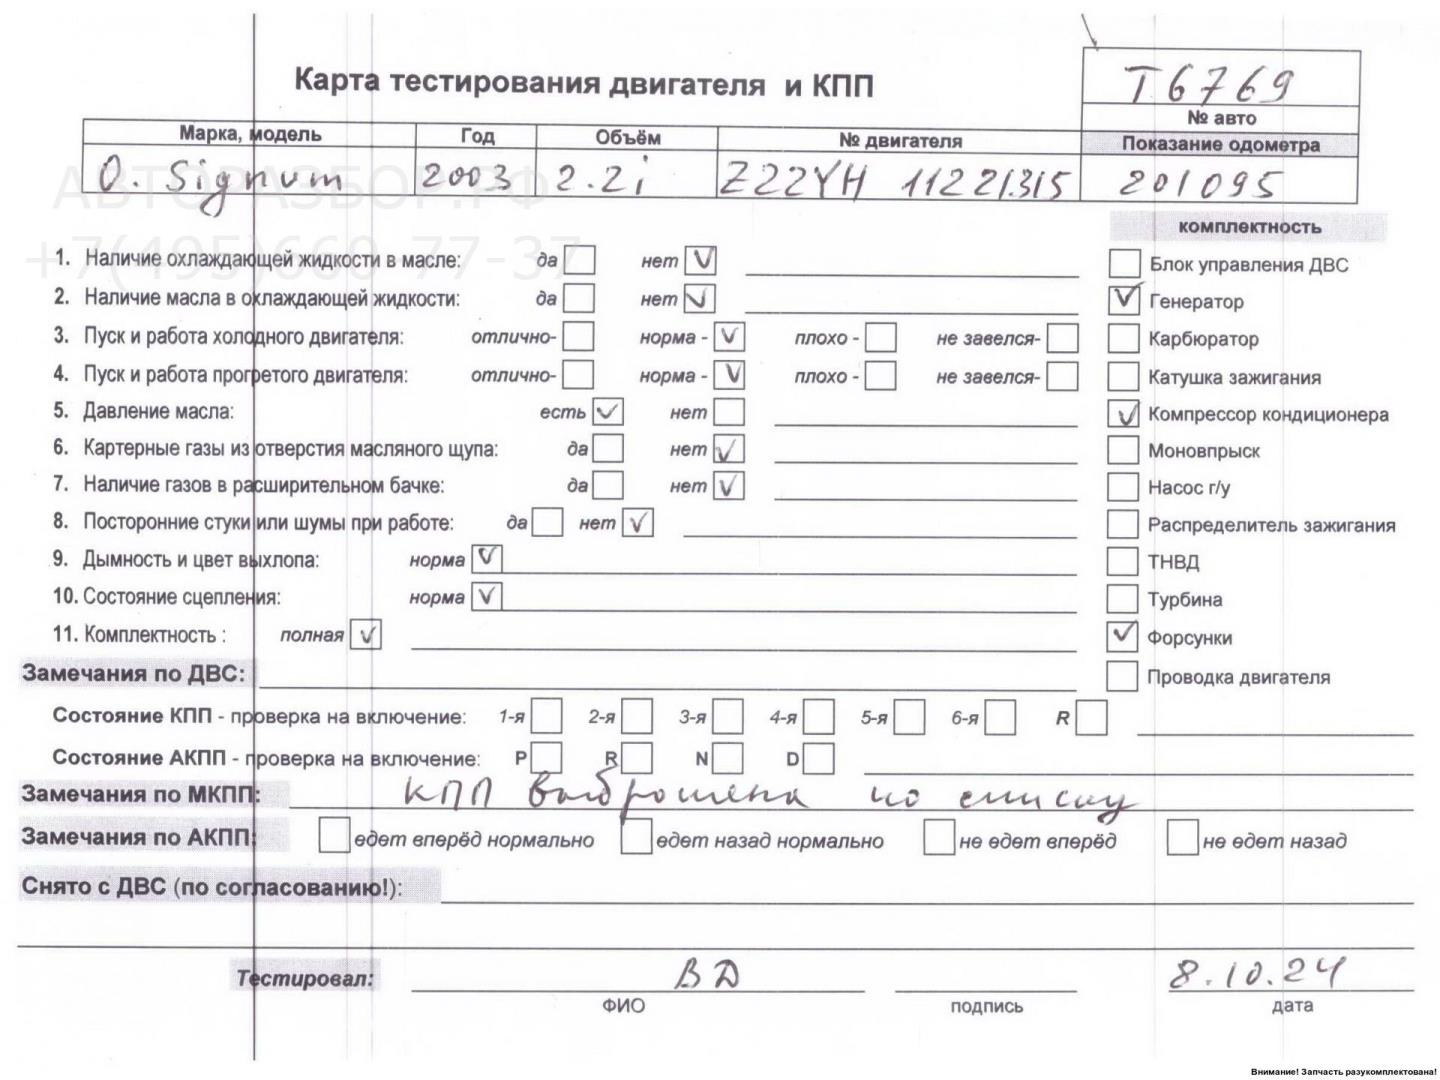 Карта тестирования двигателя и КПП
Т6769
№ авто
Марка, модель Год Объём № двигателя Показание одометра
O. Signum 2003 2.2i Z22YH 11221315 201095
АВТОРАЗБОР.РФ
+7(495)660-77-37
комплектность
1. Наличие охлаждающей жидкости в масле: да нет Блок управления ДВС
2. Наличие масла в охлаждающей жидкости: да нет Генератор
3. Пуск и работа холодного двигателя: отлично- норма - плохо - не завелся- Карбюратор
4. Пуск и работа прогретого двигателя: отлично- норма - плохо - не завелся- Катушка зажигания
5. Давление масла: есть нет Компрессор кондиционера
6. Картерные газы из отверстия масляного щупа: да нет Моновпрыск
7. Наличие газов в расширительном бачке: да нет Насос г/у
8. Посторонние стуки или шумы при работе: да нет Распределитель зажигания
9. Дымность и цвет выхлопа: норма ТНВД
10. Состояние сцепления: норма Турбина
11. Комплектность : полная Форсунки
Замечания по ДВС: Проводка двигателя
Состояние КПП - проверка на включение: 1-я 2-я 3-я 4-я 5-я 6-я R
Состояние АКПП - проверка на включение: P R N D
Замечания по МКПП: КПП выброшена по списку
Замечания по АКПП: едет вперёд нормально едет назад нормально не едет вперёд не едет назад
Снято с ДВС (по согласованию!):
Тестировал: ВД 8.10.24
ФИО подпись дата
Внимание! Запчасть разукомплектована!